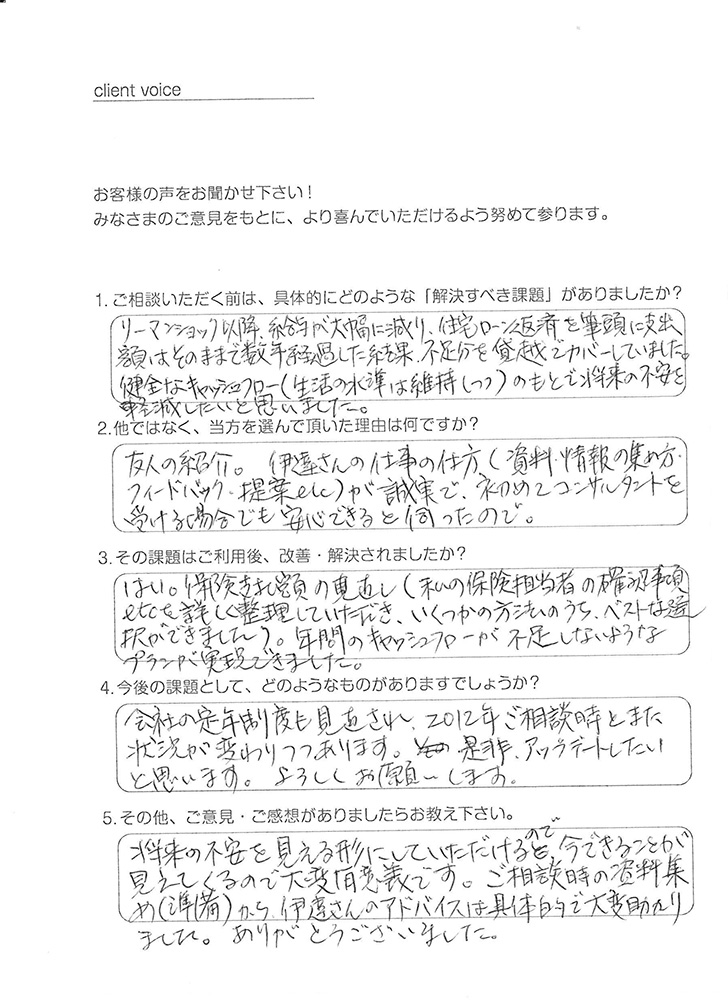 client voice
お客様の声をお聞かせ下さい！
みなさまのご意見をもとに、より喜んでいただけるよう努めて参ります。
1. ご相談いただく前は、具体的にどのような「解決すべき課題」がありましたか？
リーマンショック以降、給与が大幅に減り、住宅ローン返済を筆頭に支出
額はそのままで数年経過した結果、不足分を貸越でカバーしていました。
健全なキャッシュフロー（生活の水準は維持しつつ）のもとで将来の不安を
軽減したいと思いました。
2. 他ではなく、当方を選んで頂いた理由は何ですか？
友人の紹介。伊達さんの仕事の仕方（資料・情報の集め方・
フィードバック・提案etc）が誠実で、初めてコンサルタントを
受ける場合でも安心できると伺ったので。
3. その課題はご利用後、改善・解決されましたか？
はい。保険支払額の見直し（私の保険担当者の確認事項
etcを詳しく整理していただき、いくつかの方法のうち、ベストな選
択ができました）。年間のキャッシュフローが不足しないような
プランが実現できました。
4. 今後の課題として、どのようなものがありますでしょうか？
会社の定年制度も見直され、2012年ご相談時とまた
状況が変わりつつあります。是非、アップデートしたい
と思います。よろしくお願いします。
5. その他、ご意見・ご感想がありましたらお教え下さい。
将来の不安を見える形にしていただけるので、今できることが
見えてくるので大変有意義です。ご相談時の資料集
め（準備）から、伊達さんのアドバイスは具体的で大変助かり
ました。ありがとうございました。